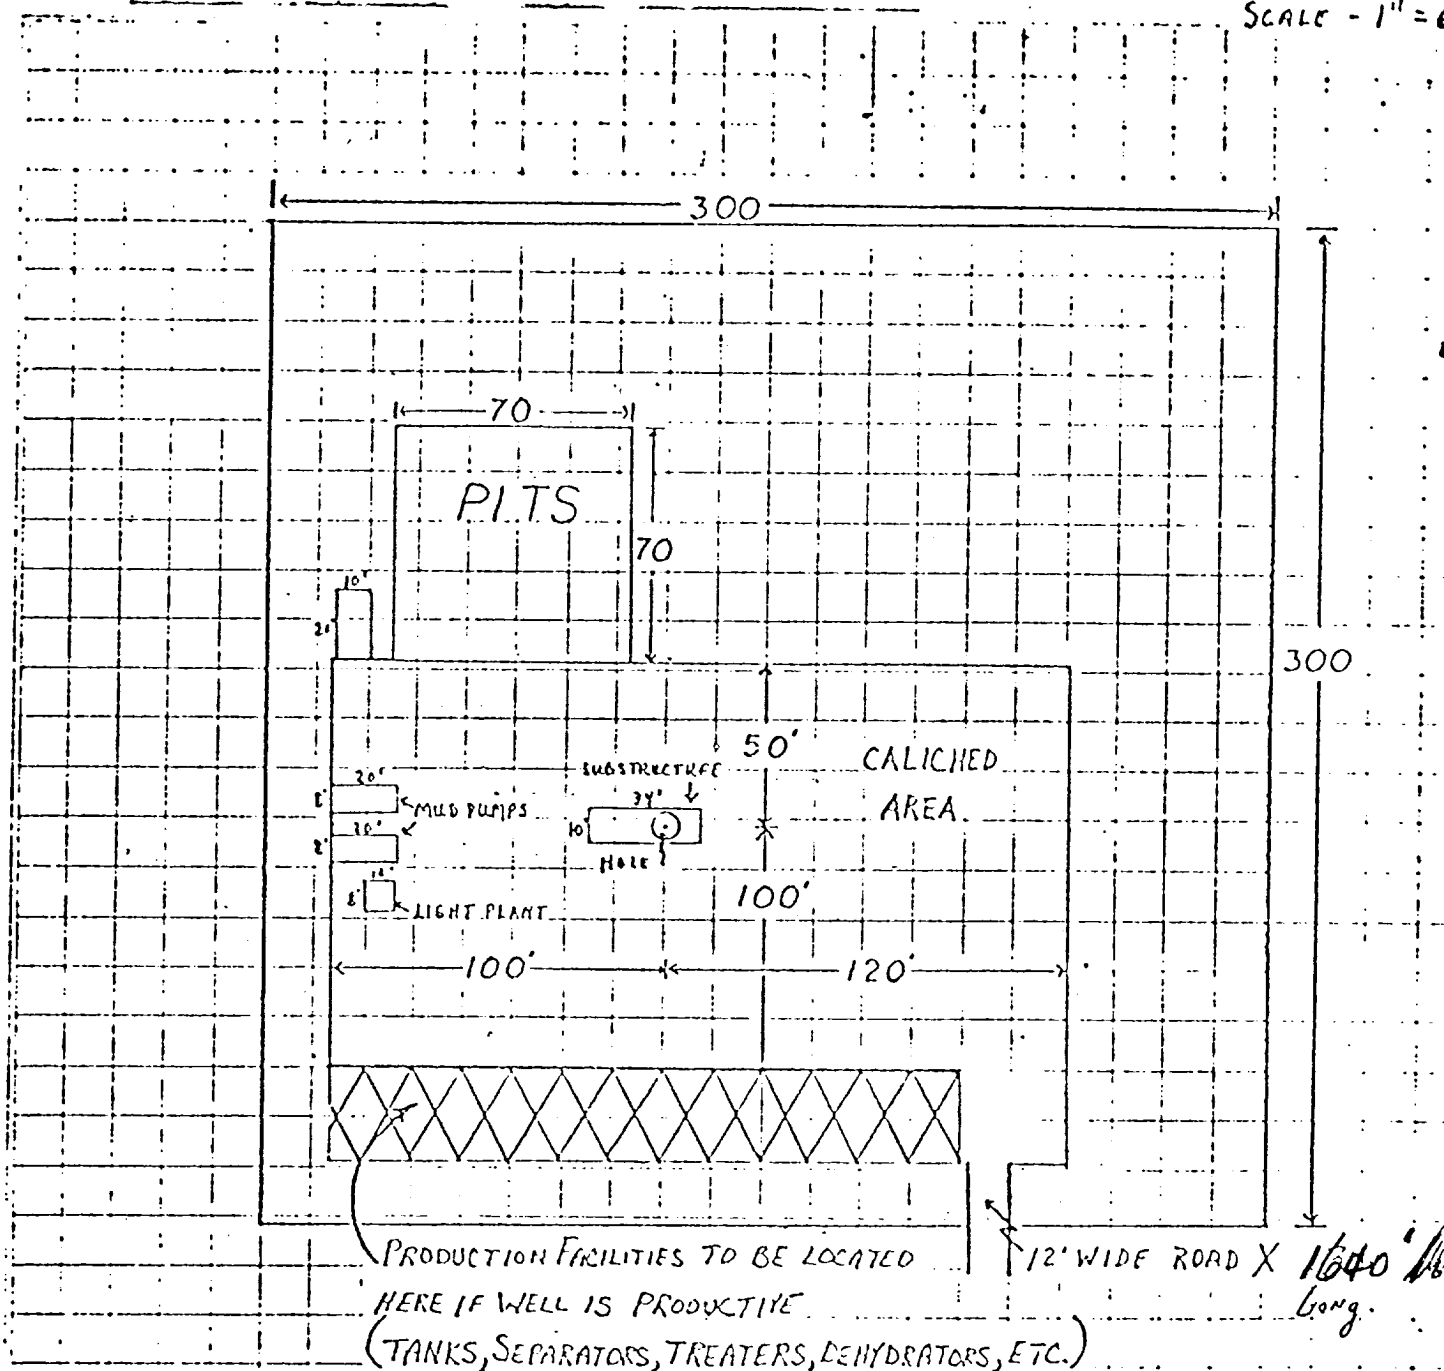 SCALE - 1" =
300
70
PITS
70
10'
20'
300
50'
CALICHED
AREA
SUBSTRUCTURE
34'
10'
HOLE
20'
8'
MUD PUMPS
20'
8'
8'
LIGHT PLANT
100'
100'
120'
PRODUCTION FACILITIES TO BE LOCATED
HERE IF WELL IS PRODUCTIVE
(TANKS, SEPARATORS, TREATERS, DEHYDRATORS, ETC.)
12' WIDE ROAD X
Long.